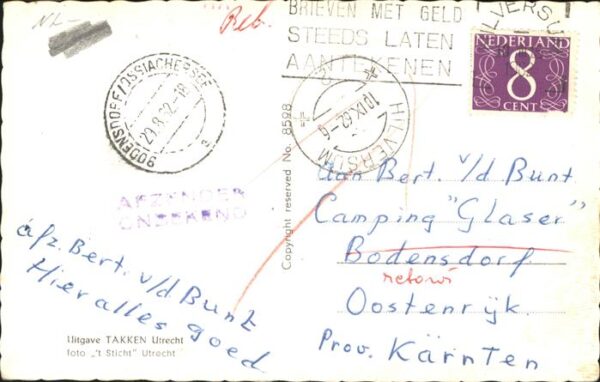 NL-
Reb.
BRIEVEN MET GELD
STEEDS LATEN
AANTEKENEN
HILVERSUM
NEDERLAND
8
CENT
BODENSDORF/OSSIACHERSEE
29.8.62-18
HILVERSUM
10.IX.62-6
AFZENDER
ONBEKEND
afz. Bert. v/d Bunt
Hier alles goed
Uitgave TAKKEN Utrecht
foto „'t Sticht" Utrecht
Copyright reserved No. 8598
Aan Bert. v/d Bunt
Camping "Glaser"
Bodensdorf
retour
Oostenrijk.
Prov. Kärnten